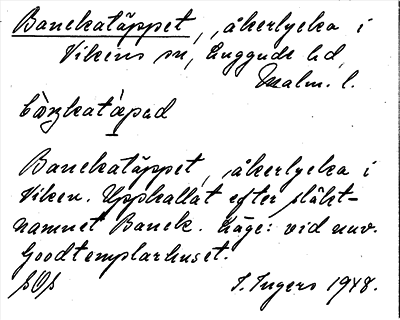 Banekatäppet, åkerlycka i
Vikens sn, Luggude hd,
Malm. l.
Banekatäppet, åkerlycka i
Viken. Uppkallat efter släkt-
namnet Banek. Läge: vid nuv.
Goodtemplarhuset.
I. Ingers 1948.